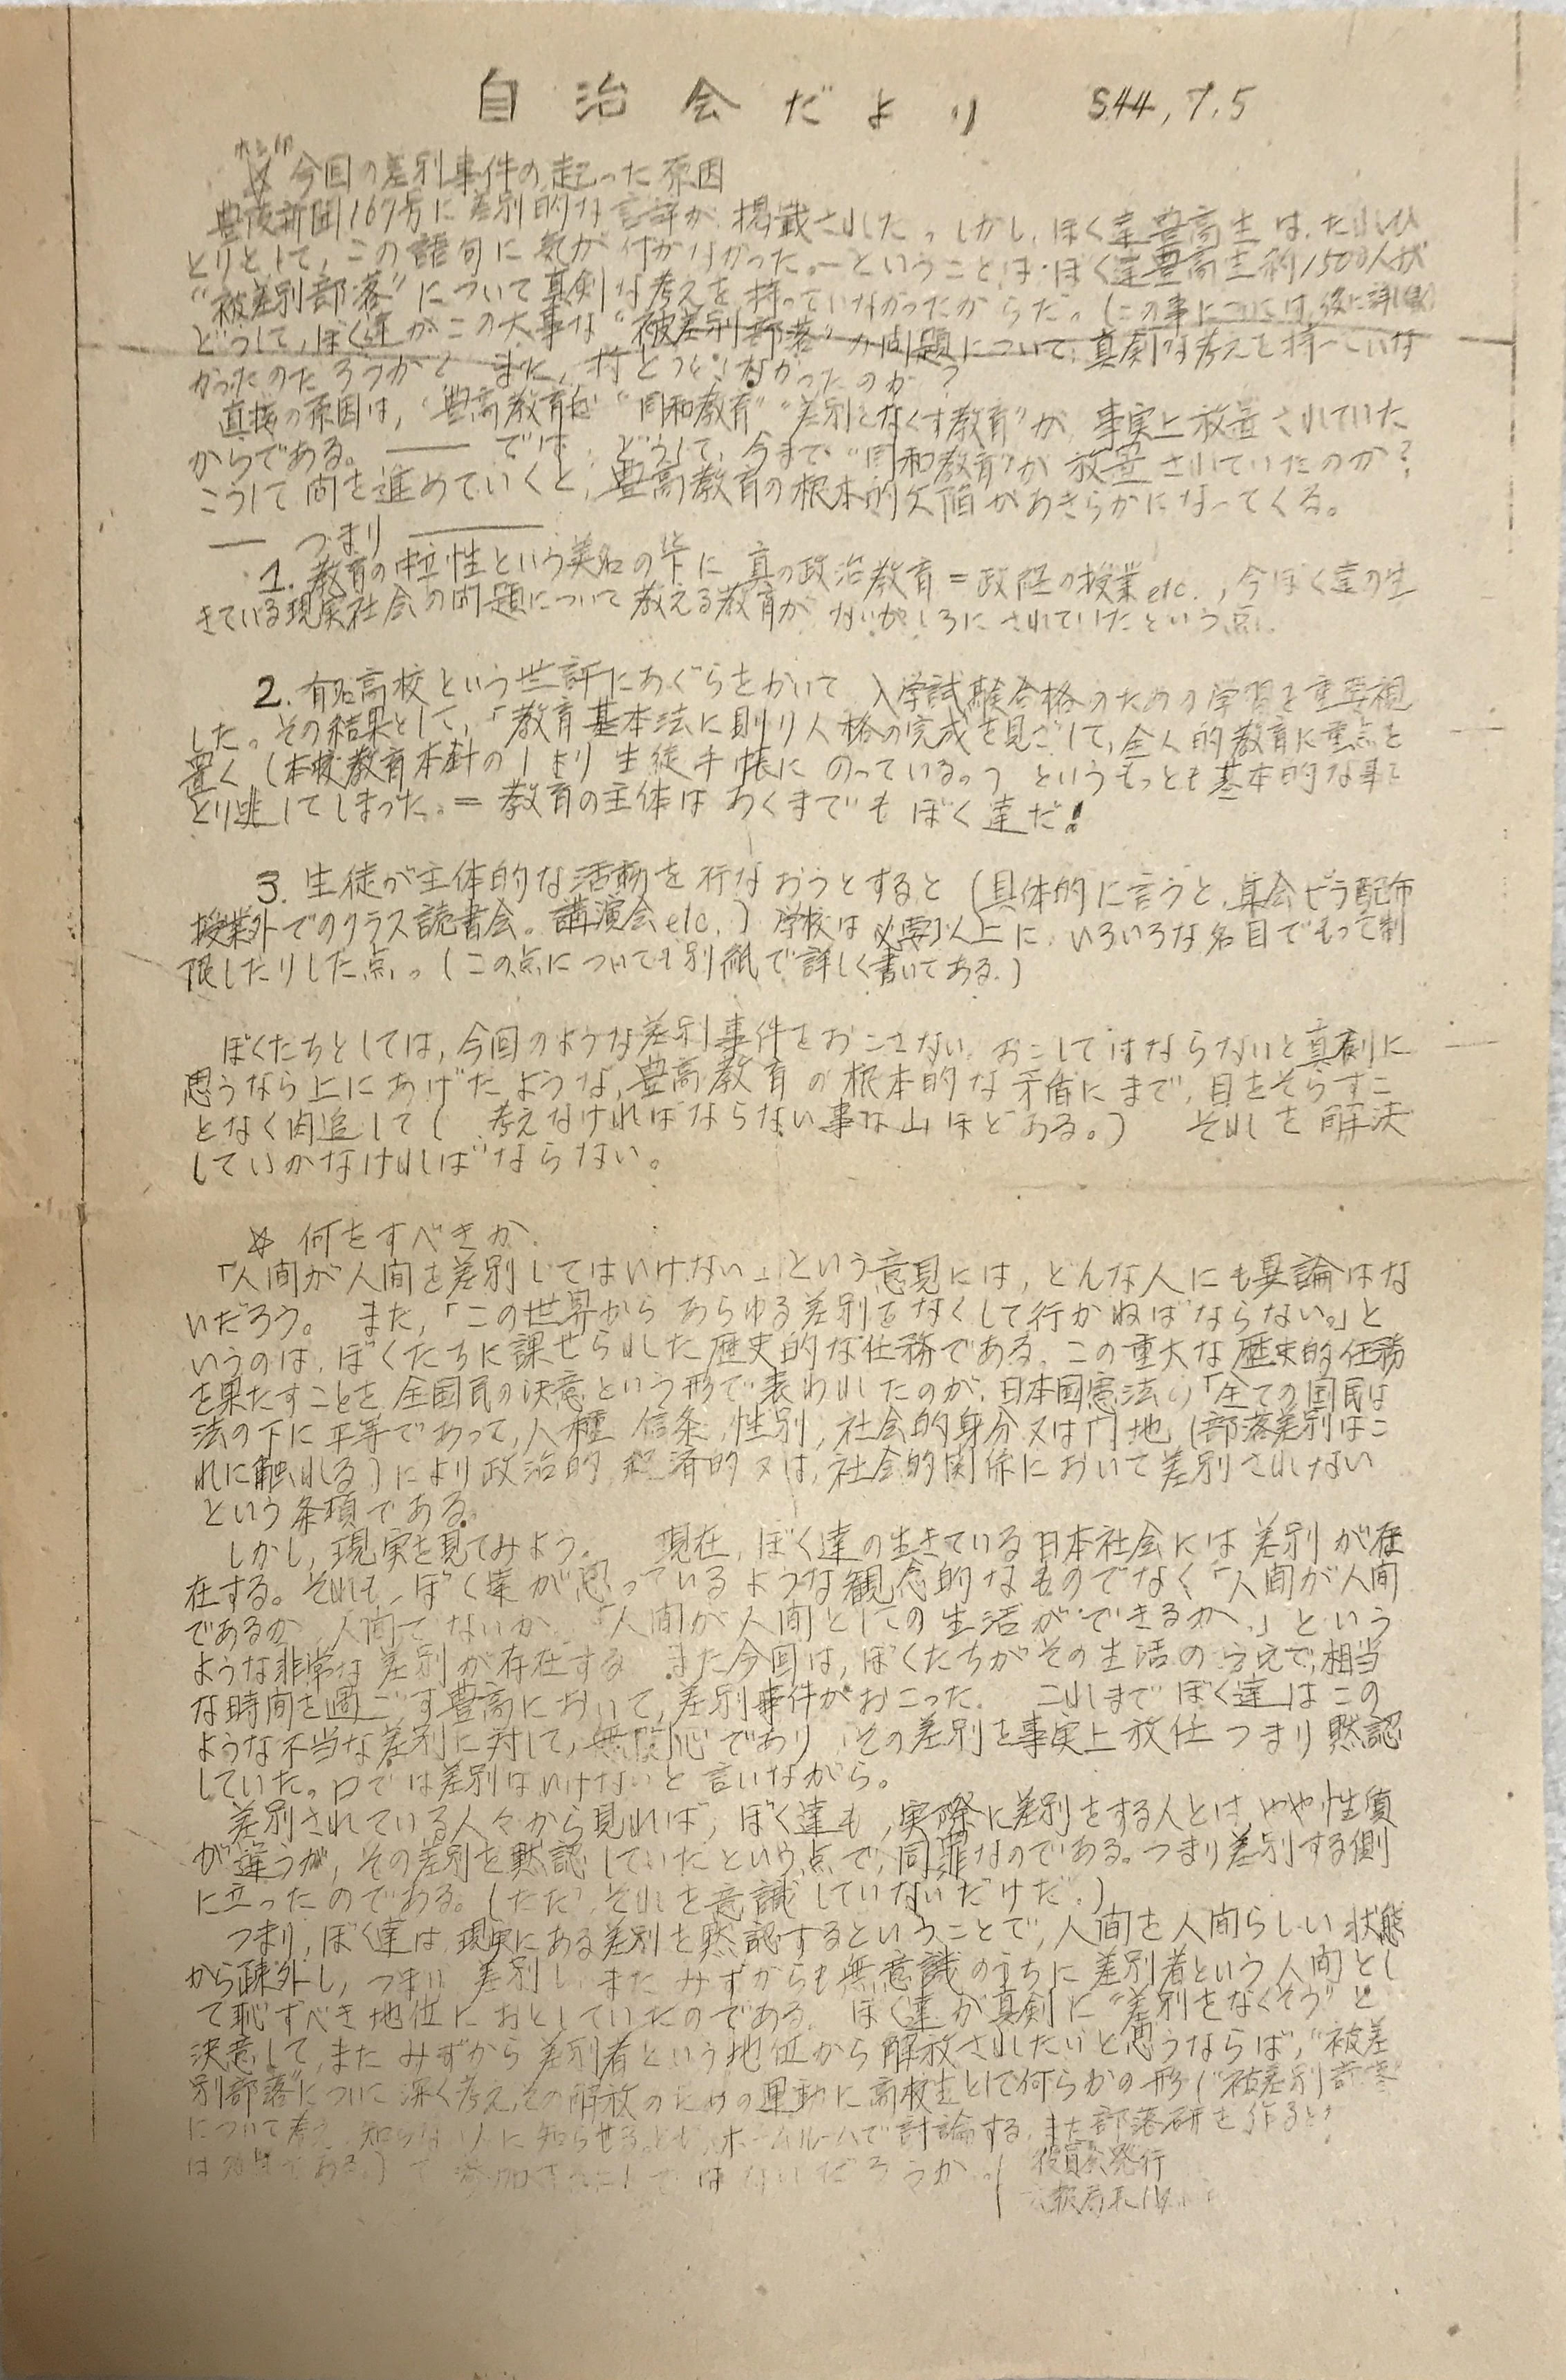 自治会だより S44.7.5
☆ 今回の差別事件の起った原因
豊陵新聞167号に差別的な言辞が掲載された。しかし、ぼく達豊高生は、だれひ
とりとして、この語句に気が付かなかった。—ということは、ぼく達豊高生約1500人が
"被差別部落"について真剣な考えを持っていなかったからだ。(この事については、後に詳し
どうして、ぼく達がこの大事な"被差別部落"の問題について、真剣な考えを持っていな
かったのだろうか? また、持とうとしなかったのか?
直接の原因は、豊高教育が"同和教育""差別をなくす教育"が、事実上放置されていた
からである。—— では、どうして、今まで"同和教育"が放置されていたのか?
こうして問を進めていくと、豊高教育の根本的欠陥があきらかになってくる。
— つまり ———
1. 教育の中立性という美名の下に 真の政治教育=政経の授業etc.,今ぼく達の生
きている現実社会の問題について教える教育が ないがしろにされていたという点。
2. 有名高校という世評にあぐらをかいて 入学試験合格のための学習を重要視
した。その結果として、「教育基本法に則り人格の完成を見ざして、全人的教育に重点を
置く(本校教育本針の1より 生徒手帳に のっている。) というもっとも基本的な事を
とり逃してしまった。= 教育の主体は あくまでも ぼく達だ!
3. 生徒が主体的な活動を行なおうとすると(具体的に言うと、集会ビラ配布
授業外でのクラス読書会。講演会etc.)学校は必要以上に、いろいろな名目でもって制
限したりした点。(この点についても別紙で詳しく書いてある.)
ぼくたちとしては、今回のような差別事件をおこさない。おこしてはならないと真剣に
思うなら上にあげたような、豊高教育の根本的な矛盾にまで、目をそらすこ
となく肉迫して( 考えなければならない事は山ほどある。) それを解決
していかなければならない。
☆ 何をすべきか.
「人間が人間を差別してはいけない」という意見には、どんな人にも異論はな
いだろう。 また、「この世界から あらゆる差別をなくして行かねばならない。」と
いうのは、ぼくたちに課せられた歴史的な任務である。この重大な歴史的任務
を果たすことを全国民の決意という形で表われたのが、日本国憲法の「全ての国民は
法の下に平等であって、人種 信条、性別、社会的身分又は門地(部落差別はこ
れに触れる)により政治的 経済的又は、社会的関係において差別されない
という条項である。
しかし、現実を見てみよう。 現在、ぼく達の生きている日本社会には差別が存
在する。それも、ぼく達が思っているような観念的なものでなく「人間が人間
であるか、人間でないか。「人間が人間としての生活ができるか。」という
ような非常な差別が存在する また今回は、ぼくたちがその生活の うえで、相当
な時間を過ごす豊高において、差別事件がおこった。 これまで ぼく達はこの
ような不当な差別に対して、無関心であり、その差別を事実上放任つまり黙認
していた。口では差別はいけないと言いながら。
差別されている人々から見れば、ぼく達も、実際に差別をする人とは、やや性質
が違うが、その差別を黙認していたという点で、同罪なのである。つまり差別する側
に立ったのである。(ただ、それを意識していないだけだ.)
つまり、ぼく達は現実にある差別を黙認するということで、人間を人間らしい状態
から疎外し、つまり 差別し、また みずからも無意識のうちに差別者という人間とし
て恥すべき地位におとしていたのである。 ぼく達が真剣に"差別をなくそう"と
決意して、また みずから差別者という地位から解放されたいと思うならば、"被差
別部落"について深く考え、その解放のための運動に高校生として何らかの形("被差別部落"
について考え、知らない人に知らせる。とか、ホームルームで討論する、また部落研を作ると
は ある。)で参加すべきではないだろうか。 役員会発行